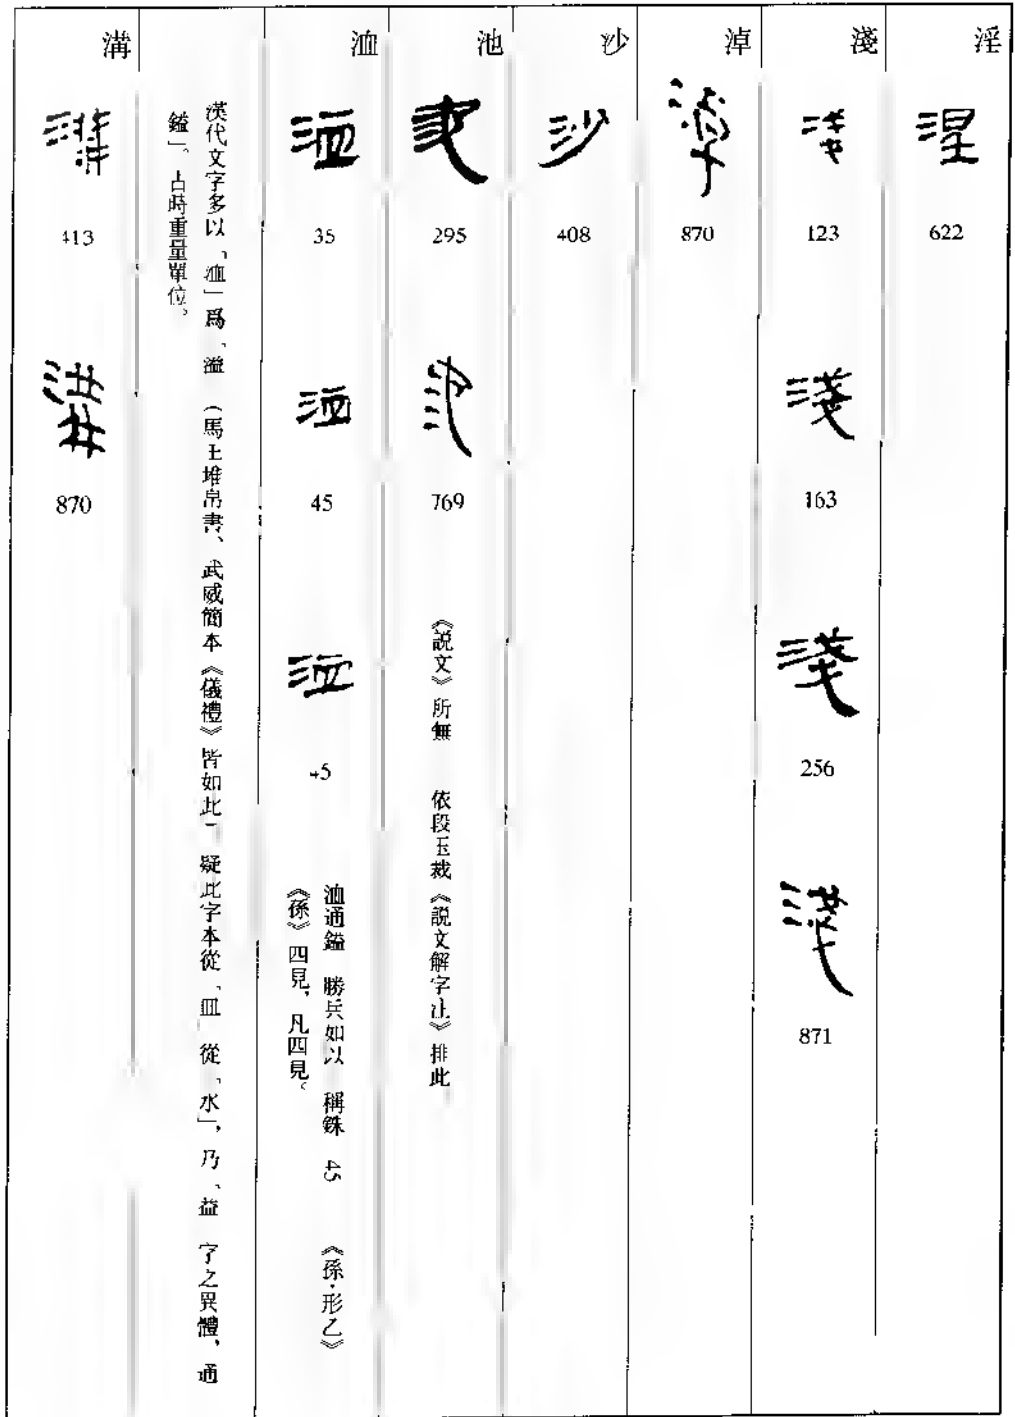 淫
622
淺
123
163
256
871
淖
870
沙
408
池
295
769
《説文》所無 依段玉裁《説文解字注》排此
洫
35
45
45
洫通鎰 勝兵如以 稱銖 45 《孫·形乙》
《孫》四見，凡四見。
漢代文字多以「洫」爲「溢 （馬王堆帛書、武威簡本《儀禮》皆如此 疑此字本從「皿 從「水」，乃「益 字之異體，通
鎰」。古時重量單位。
溝
413
870